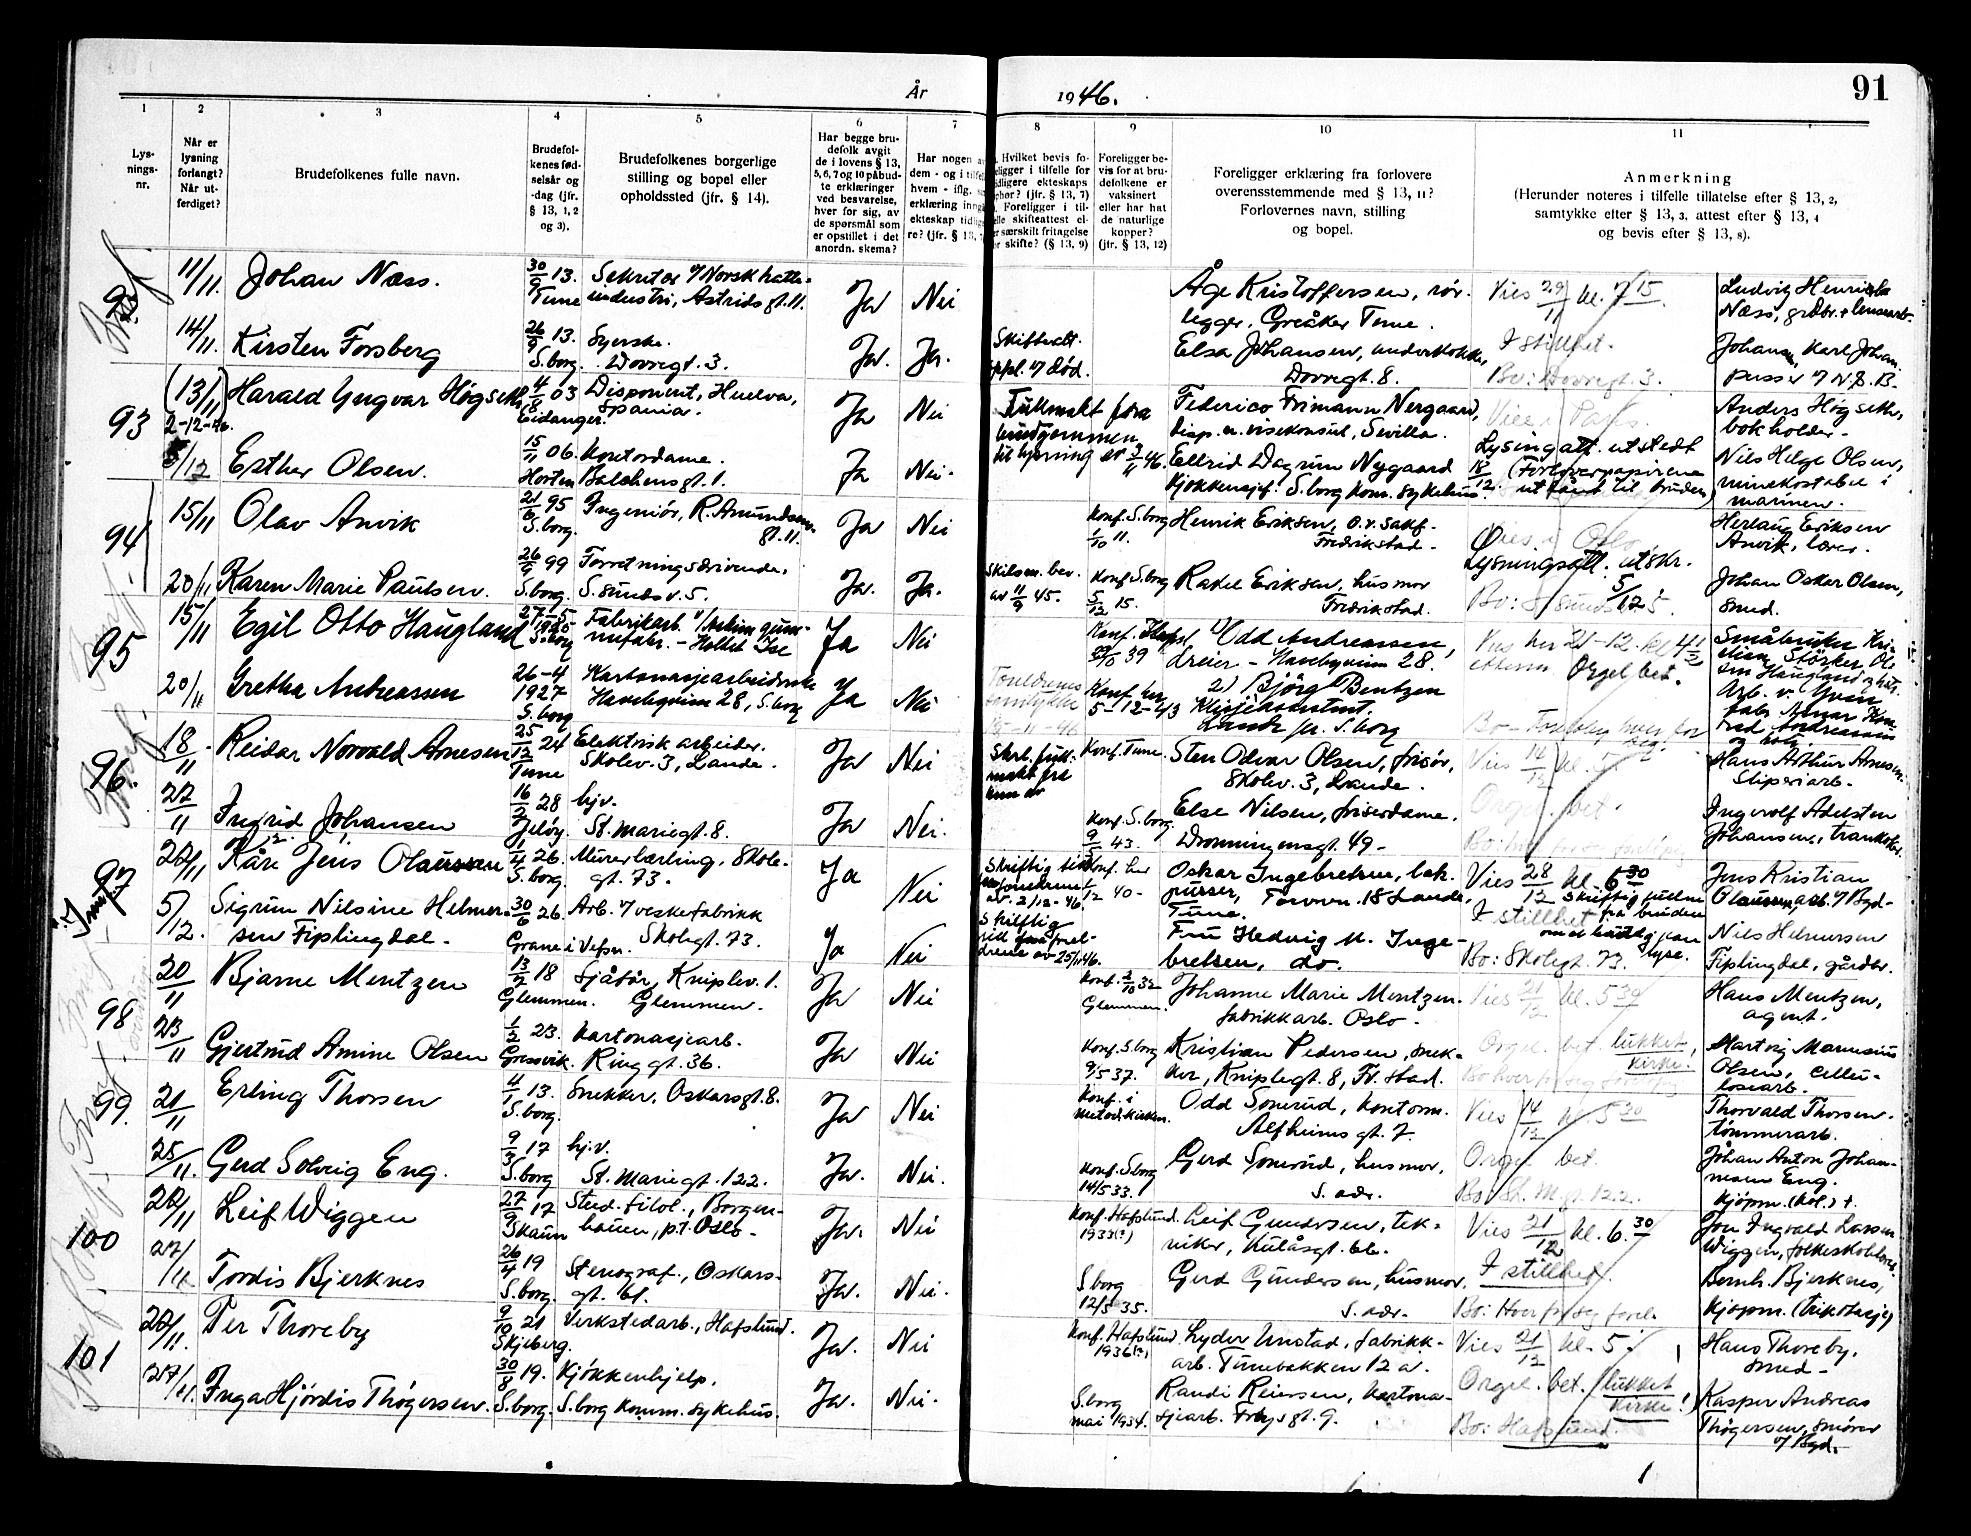 År 1946.
91
1 2 3 4 5 6 7 8 9 10 11
Lys-
nings-
nr.
Når er
lysning
forlangt?
Når ut-
ferdiget?
Brudefolkenes fulle navn.
Brudefol-
kenes fød-
selsår og
-dag (jfr.
§ 13, 1, 2
og 3).
Brudefolkenes borgerlige
stilling og bopel eller
opholdssted (jfr. § 14).
Har begge bru-
defolk avgit
de i lovens § 13,
5, 6, 7 og 10 påbud-
te erklæringer
ved besvarelse,
hver for sig, av
de spørsmål som
er opstillet i det
anordn. skema?
Har nogen av
dem - og i tilfel
hvem - iflg.
erklæring inng
ekteskap tidlig
re? (jfr. § 13,
Hvilket bevis fo-
religger i tilfelle for
tidligere ekteskaps
ophør? (jfr. § 13, 7)
Foreligger i til-
felle skifteattest el-
er særskilt fritagelse
for skifte? (§ 13, 9)
Foreligger be-
vis for at bru-
defolkene er
vaksinert
eller har hat
de naturlige
kopper?
(jfr. § 13, 12)
Foreligger erklæring fra forlovere
overensstemmende med § 13, 11?
Forlovernes navn, stilling
og bopel.
Anmerkning
(Herunder noteres i tilfelle tillatelse efter § 13, 2,
samtykke efter § 13, 3, attest efter § 13, 4
og bevis efter § 13, 8).
11/11. Johan Næss. 30/9 13. Tune Sekretær v/ Norsk hatte-
industri, Astridsgt. 11. Ja Nei
Åge Kristoffersen, rør-
legger, Greåker Tune.
Vies 29/11 kl. 7 15.
Ludvig Henrik
Næss, grdbr.
14/11. Kirsten Forsberg 26/9 13. S.borg. Syerske.
Dovregt. 3. Ja. Ja.
Skifteatt.
Elsa Johansen,
Dovregt. 8.
I stillhet.
Bo: Dovregt. 3.
Johansen, Karl Johan
93 (13/11) 2-12-46. Harald Yngvar Høgseth 4/8 03 Eidanger. Disponent, Huelva,
Spania. Ja Nei
Fullmakt fra
brudgommen
til lysning av
Federico Frimann Nergaard,
disp. av. visekonsul, Sevilla.
Anders Høgseth,
bokholder.
5/12 Esther Olsen. 15/11 06. Horten Kontordame.
Balchensgt. 1. Ja Nei.
Ellrid Dagrun Nygaard
kjøkkensjef. S.borg kom. sykehus.
Lysingatt. utstedt
18/12. (Forloverpapirene
utlånt til bruden)
Nils Helge Olsen,
minekostabel i
marinen.
94 15/11 Olav Anvik 21/6 95 S.borg. Ingeniør, R. Amundsens
gt. 11. Ja Nei
Konf. S.borg
1/10 11.
Henrik Eriksen, o.r. sakf.
Fredrikstad.
Vies i Oslo
Herlaug Eriksen
Anvik, lærer.
20/11 Karen Marie Paulsen. 26/9 99 S.borg. Forretningsdrivende.
S. sundsv. 5. Ja. Ja.
Skilsm. bev.
av 11/9 45.
Konf. S.borg
5/12 15.
Rakel Eriksen, husmor
Fredrikstad.
Lysningsatt. utskr.
5/12
Johan Oskar Olsen,
smed.
95 15/11 Egil Otto Haugland 27-5 S.borg Fabrikarb. v/ Askim gum-
mifabr. - Holtet Ise Ja Nei
1) Odd Andreassen,
dreier - Havebyveien 28.
Vies her 21-12. kl 4 1/2
Orgel bet.
20/11 Gretha Andreassen 26-4 1927 S.borg Kartonasjearbeiderske
Havebyveien 28, S.borg Ja Nei
Konf. her
5-12-43
2) Bjørg Bentzen
96. 18/11 Reidar Norvald Arnesen 25/12 24 Tune Elektrisk arbeider.
Skolev. 3, Lande. Ja Nei
Konf. Tune.
Sten Odvar Olsen, frisør,
Skolev. 3, Lande.
Vies 14/12 kl. 5
Hans Arthur Arnesen
sliperiarb.
22/11 Ingrid Johansen 16/2 28 Jeløy. hjv.
St. Mariegt. 8. Ja Nei.
Konf. S.borg.
9/5 43.
Else Nilsen, friserdame.
Dronningensgt. 49-
Orgel. bet.
Ingevolf Adelsten
Johansen,
97 22/11 Kåre Jens Olaussen 1/4 26. S.borg. Murerlærling, Skole-
gt. 73. Ja Nei
Oskar Ingebretsen, lok.
pusser, Torvvn. 18 Lande,
Tune.
Vies 28/12 kl. 6 30
I stillhet
Jens Kristian
Olaussen, arb. v/ Bgd-
5/12. Sigrun Nilsine Helmer-
sen Fiplingdal. 30/6 26. Grane i Vefsn. Arb. v/ veskefabrikk
Skolegt. 73. Ja Nei
Skriftlig
Fru Hedvig M. Inge-
bretsen, do.
Bo: Skolegt. 73.
Nils Helmersen
Fiplingdal, gårdbr.
98 20/11 Bjarne Mentzen 13/7 18 Glemmen. Sjåfør, Kniplev. 1.
Glemmen. Ja Nei
Konf. 2/10 32
Glemmen.
Johanne Marie Mentzen.
fabrikkarb. Oslo.
Vies 21/12 kl. 5 30
Hans Mentzen,
agent.
23/11 Gjertrud Amine Olsen 1/2 23. Gressvik. Kartonasjearb.
Ringgt. 36. Ja Nei
Konf. S.borg
9/5 37.
Kristian Pedersen, snek-
ker, Kniplegt. 8, Fr.stad.
Orgel. bet. lukket
kirke.
Hartvig Marensius
Olsen, cellu-
losearb.
99. 21/11 Erling Thorsen 4/1 13. S.borg. Snekker, Oskarsgt. 8. Ja Nei
Konf. i
metodistkirken.
Odd Sonerud, kontorm.
Alfheimsgt. 7.
Vies 14/12 kl. 5 30
Thorvald Thorsen.
tømmerarb.
25/11. Gerd Solveig Eng. 9/3 17 S.borg hjv.
St. Mariegt. 122. Ja. Nei.
Konf. S.borg
14/5 33.
Gerd Sonerud, husmor.
S. adr.
Orgel bet.
Bo: St. M. gt. 122.
Johan Anton Johan-
nesen Eng.
kjøpm. (kol.) +.
100 22/11 Leif Wiggen 27/9 17 Skaun Stud. filol., Borgen-
haugen, p.t. Oslo- Ja. Nei
Konf. Hafslund.
1933(?)
Leif Gundersen, tek-
niker, Kulåsgt. 66.
Vies 21/12 kl. 6. 30
Jon Ingvald Larsen
Wiggen, folkeskolelærer.
27/11. Tordis Bjerknes 26/4 19 S.borg. Stenograf., Oskars-
gt. 61. Ja. Nei.
S.borg
12/5 35.
Gerd Gundersen, husmor,
S. adr.
I stillhet.
Bo: Hver for seg forel.
Bernh. Bjerknes,
kjøpm. (trikotasje)
101 22/11. Per Thoreby 9/10 21 Skjeberg. Verkstedarb., Hafslund. Ja. Nei
Konf. Hafslund
1936(?)
Lyder Unstad, fabrikk-
arb. Tunebakken 12 a.
Vies 21/12 kl. 5.
Hans Thoreby.
smed-
27/11. Inga Hjørdis Thøgersen. 30/8 19. S.borg. Kjøkkenhjelp.
S.borg komm. sykehus. Ja. Nei.
S.borg
mai 1934.
Randi Reiersen, kartona-
sjearb. Frøysgt. 9.
Orgel. bet. lukket
kirke!
Bo: Hafslund.
Kasper Andreas
Thøgersen, smører
v/ Bgd.